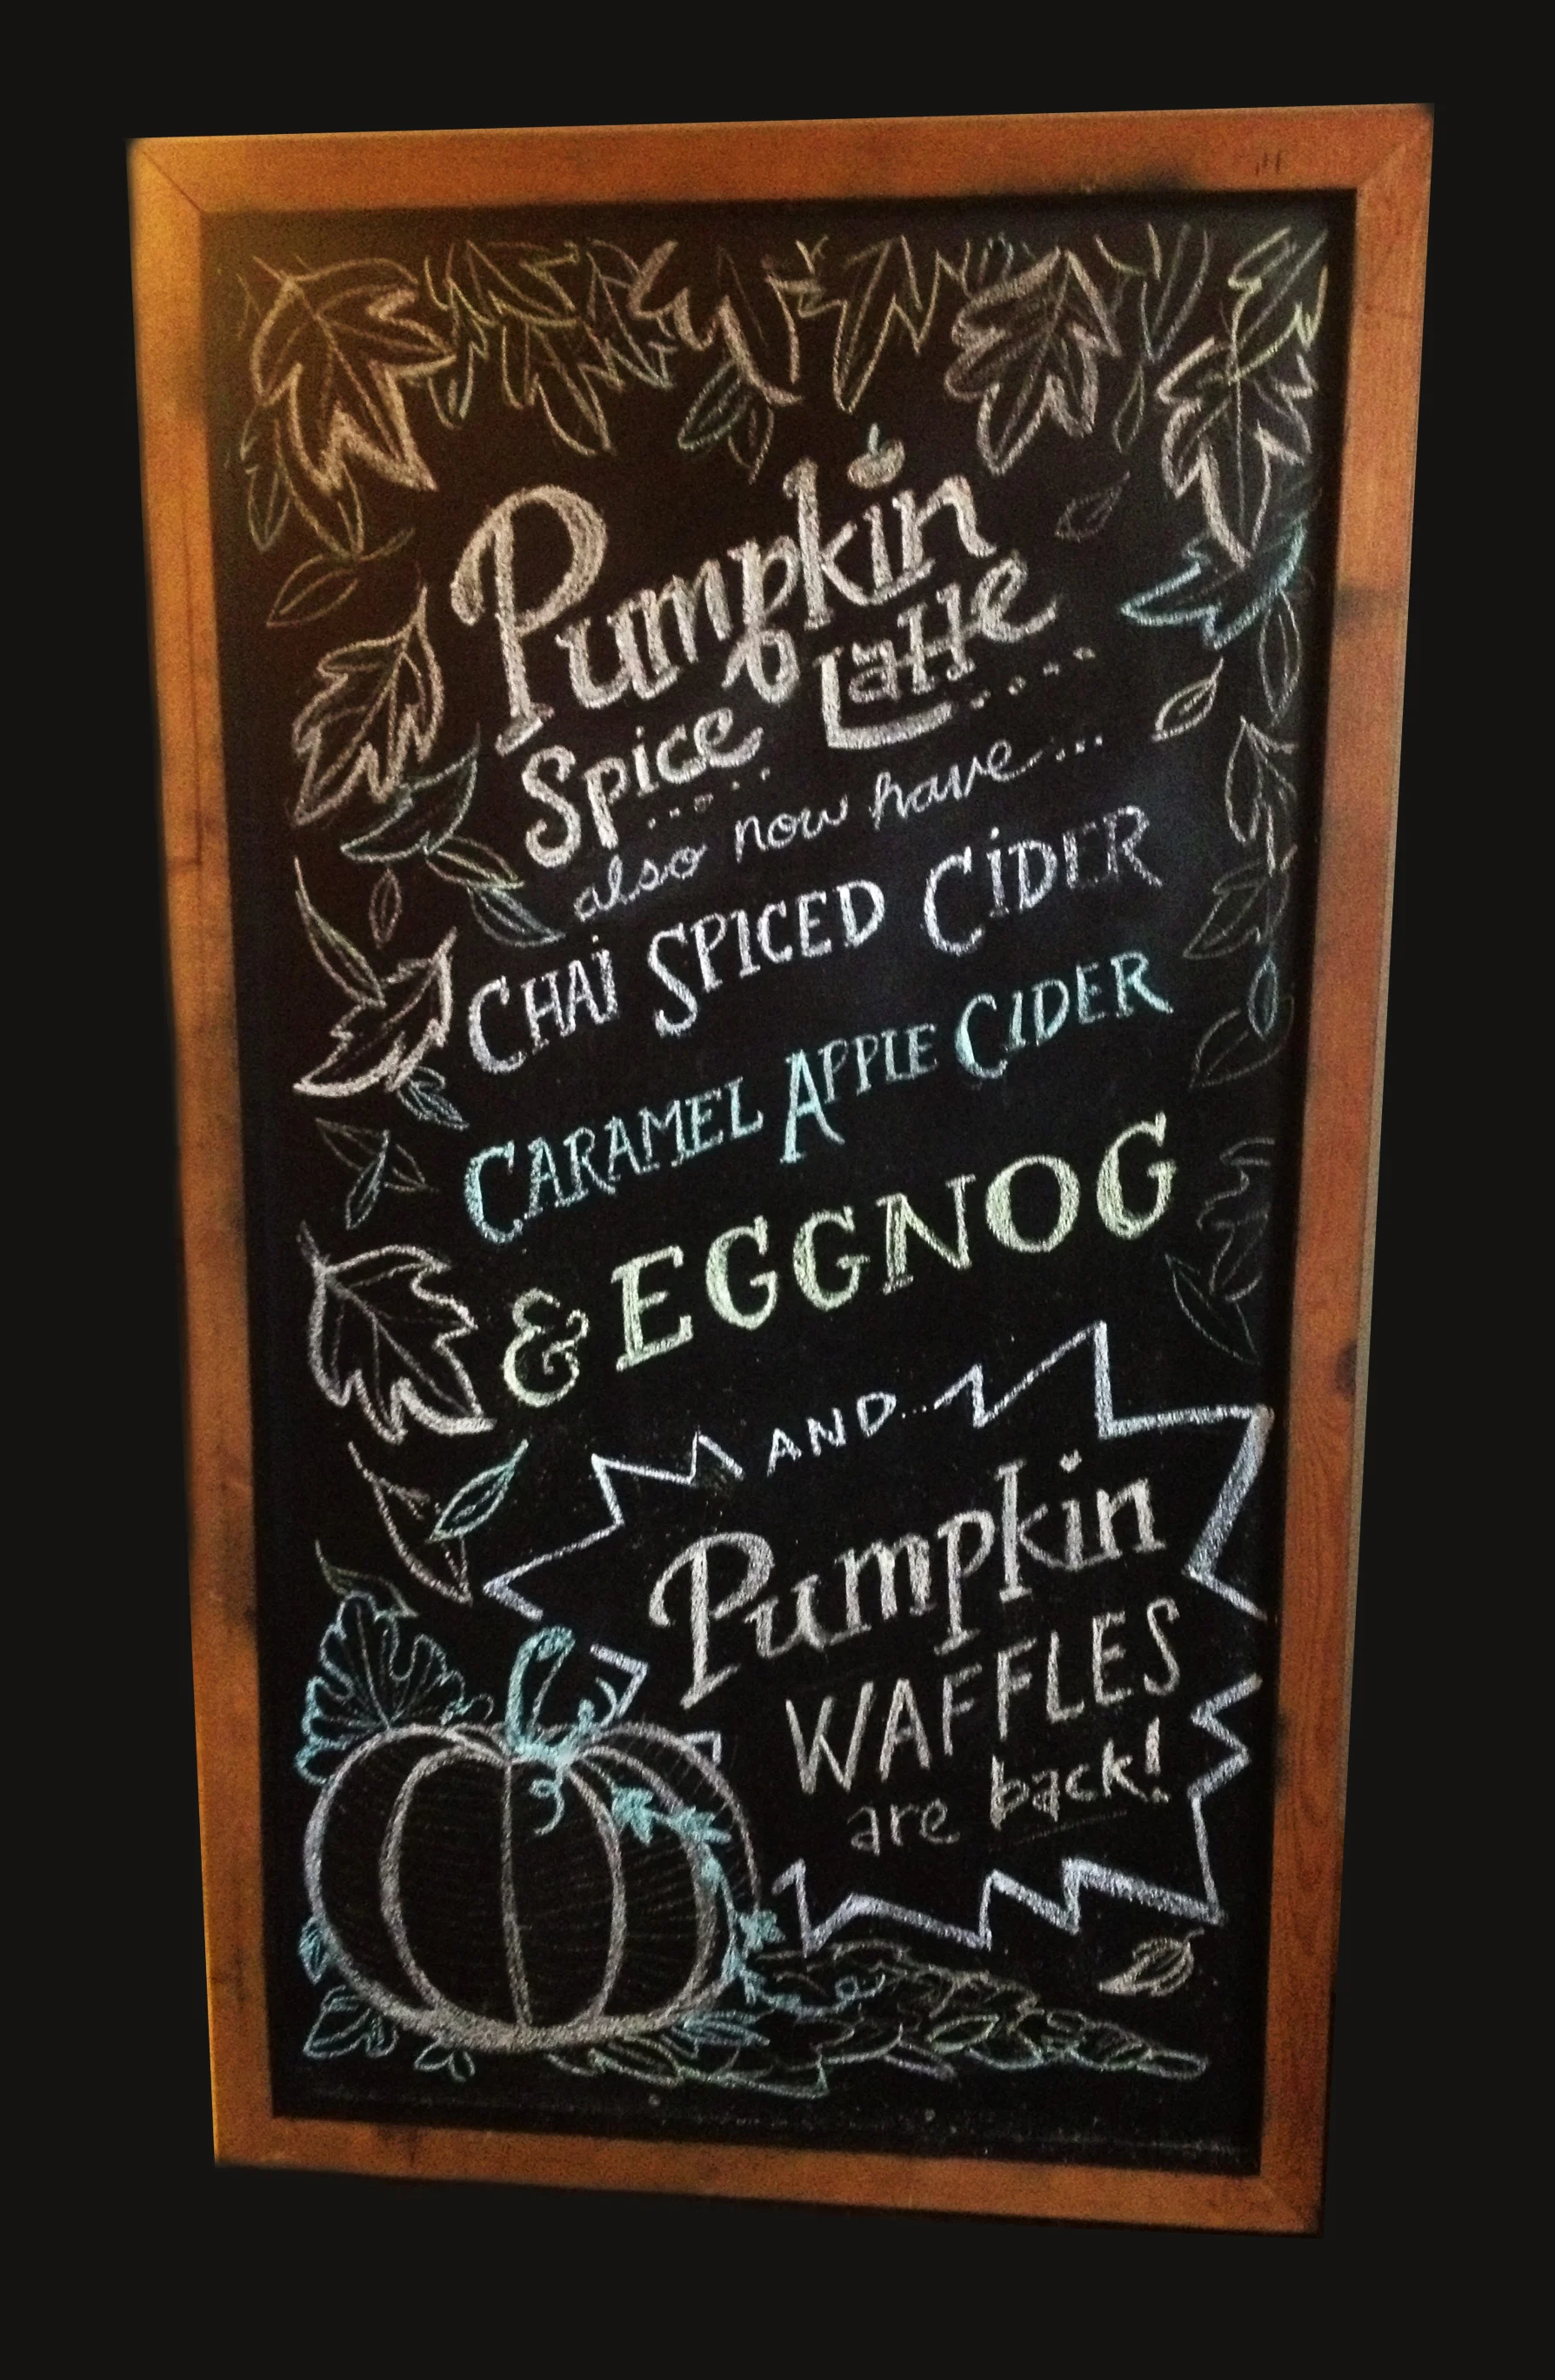 Pumpkin
Spice Latte
also now have...
CHAi SPICED CiDER
CARAMEL APPLE CIDER
& EGGNOG
AND...
Pumpkin
WAFFLES
are back!